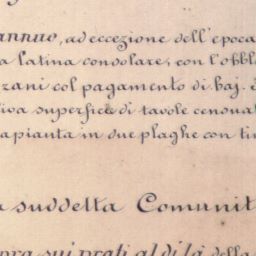 annuo, ad eccezione dell'epoca
a latina consolare, con l'obbl
zani col pagamento di baj.
iva superficie di tavole censuat
apianta in due plaghe con tin
a suddetta Comunit
pra sui prati al di là della